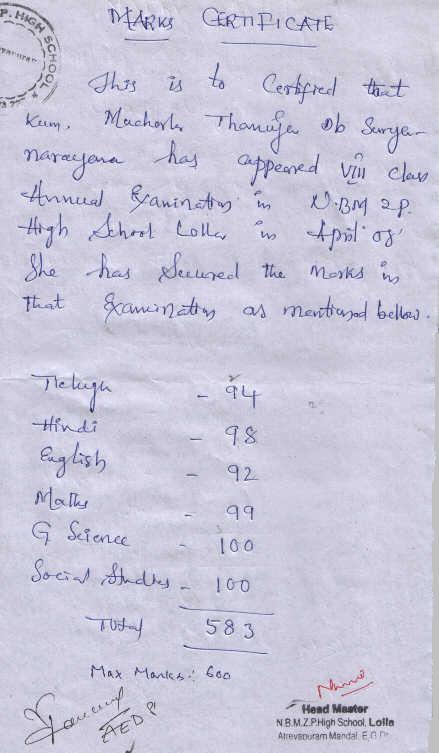 MARKS CERTIFICATE
P. HIGH SCHOOL
This is to Certifred that
Kum. Macharla Thanuja D/o Surya-
narayana has appeared VIII Class
Annual Examination in N.BM Z.P.
High School Lolla in April 08'
She has Secured the marks in
That Examination as mentioned bellow.
Telugu - 94
Hindi - 98
English - 92
Maths - 99
G Science - 100
Social Studies - 100
Total 583
Max Marks: 600
Head Master
N.B.M.Z.P.High School, Lolla
Atreyapuram Mandal, E.G.Dt.